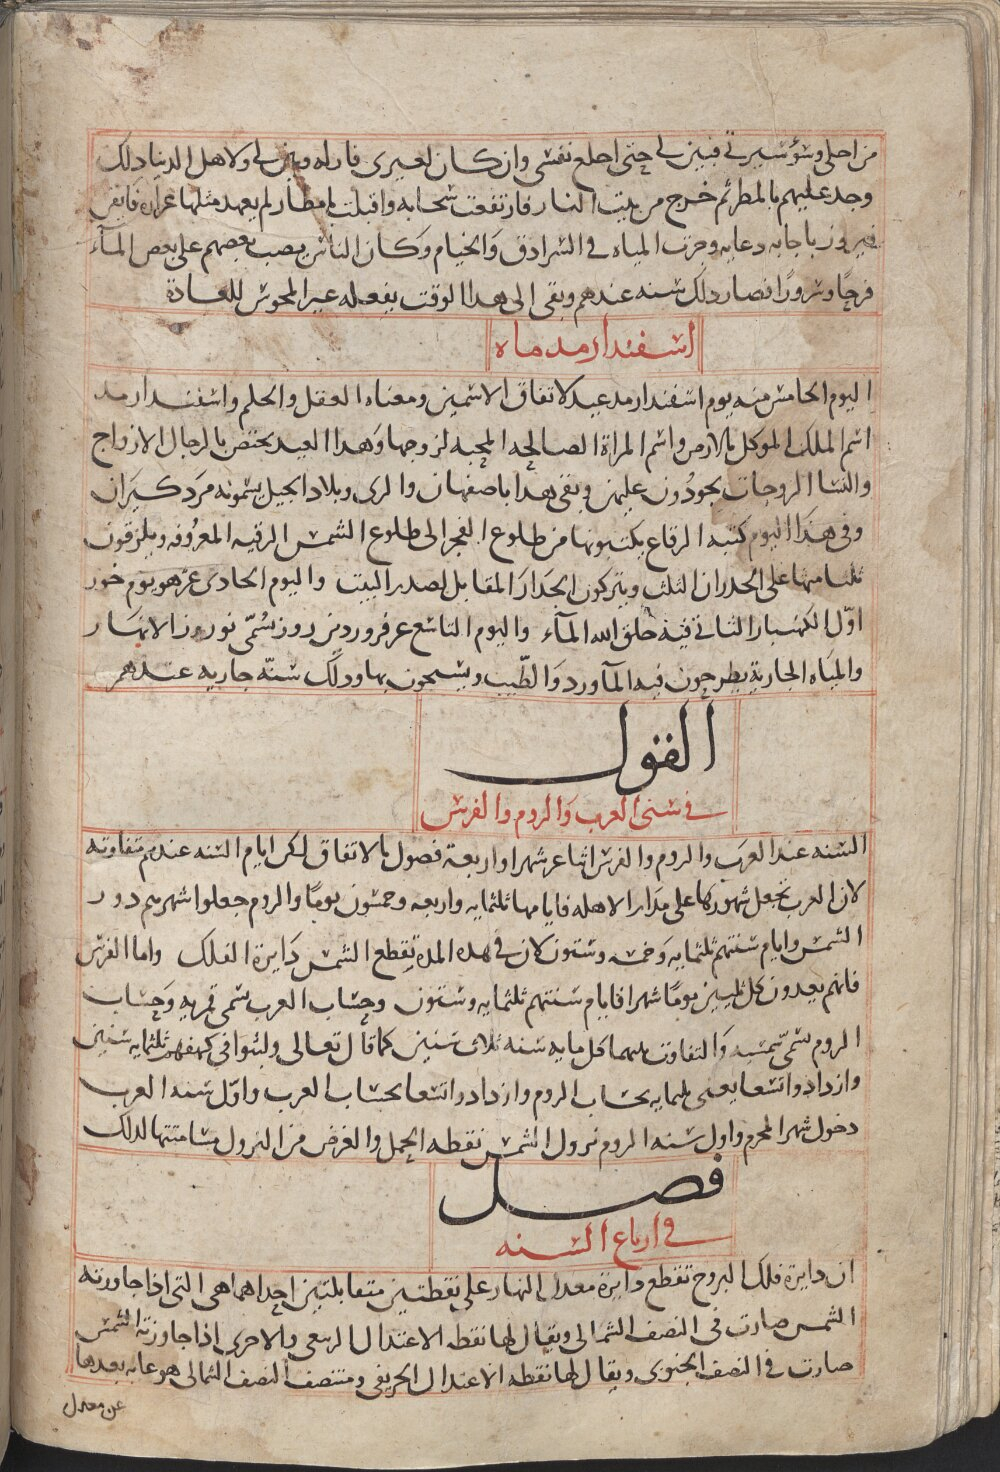 من اجلي وسؤ سيرتي فبين لي حتى اخلع نفسي وان كان لغيري فازله وبين لي ولاهل الدنيا ذلك
وجد عليهم بالمطر ثم خرج من بيت النار فارتفعت سحابه واقبلت بامطار لم يعهد مثلها غزاره فايقن
فيروز باجابه دعايه وجرت المياه في السرادق والخيام وكان الناس يصب بعضهم على بعض المآء
فرحًا وسرورًا فصار ذلك سنه عندهم وبقى الى هذا الوقت يفعله غير المجوس للعادة
اسفندارمد ماه
اليوم الخامس منه يوم اسفندارمد عيد لاتفاق الاسمين ومعناه العقل والحلم واسفندارمد
اسم الملك الموكل بالارض واسم المراة الصالحه المحبه لزوجها وهذا العيد يختص بالرجال الازواج
والنسا الزوجات يجودون عليهن وبقى هذا باصفهان والرى وبلاد الجبل يسمونه مردكيران
وفي هذا اليوم كتبه الرقاع يكتبونها من طلوع الفجر الى طلوع الشمس الرقيه المعروفه ويلزقون
ثلثا منها على الجدران الثلث ويتركون الجدار المقابل لصدر البيت واليوم الحادى عشر هو يوم خور
اوّل الكهنبار الثاني فيه خلق الله المآء واليوم التاسع عشر فروردين روز سُمّى نوروز الانهار
والمياه الجارية يطرحون فيه المآورد والطّيب ويسبحون بها وذلك سنّه جاريه عندهم
القول
في سنى العرب والروم والفرس
السنه عند العرب والروم والفرس اثنا عشر شهرا واربعة فصول بالاتفاق لكن ايام السنه عندهم متفاوته
لان العرب تجعل شهورها على مدار الاهله فايامها ثلثمايه واربعه وخمسون يومًا والروم جعلوا شهرهم دور
الشمس وايام سنتهم ثلثمايه وخمسه وستون لان في هذه المدة تقطع الشمس دايرة الفلك واما الفرس
فانهم يعدون كل ثلثين يومًا شهرا فايام سنتهم ثلثمايه وستون وحساب العرب سمى قمريه وحساب
الروم سُمّى شمسيه والتفاوت بينهما كل مايه سنه ثلاث سنين كما قال تعالى ولبثوا في كهفهم ثلثمايه سنين
وازدادوا تسعا يعنى ثلثمايه بحساب الروم وازدادوا تسعا بحساب العرب واوّل سنه العرب
دخول شهر المحرم واول سنه الروم نزول الشمس نقطه الحمل والغرض من النزول مسامتتها لذلك
فصل
في ارباع السنه
ان دايرة فلك البروج تقطع دايرة معدل النهار على نقطتين متقابلتين احداهما هي التي اذا جاورته
الشمس صارت في النصف الشمالى ويقال لها نقطه الاعتدال الربيعى والاخرى اذا جاورته الشمس
صارت في النصف الجنوبى ويقال لها نقطه الاعتدال الخريفى ومنتصف النصف الشمالى هو غايه بعدها
عن معدل